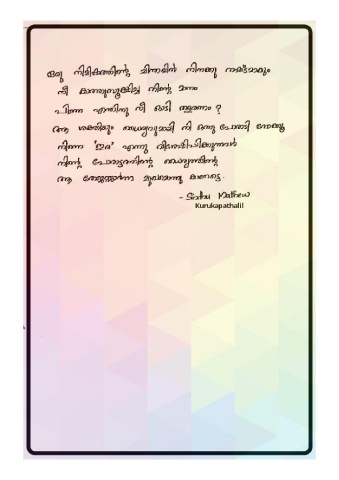 ഒരു നിമിഷത്തിന്റെ മിന്നലിൽ നിനക്കു നഷ്ടമാകും
നീ കാത്തുസൂക്ഷിച്ച നിന്റെ മനം
പിന്നെ എന്തിനു നീ ഓടി തളരണം ?
ആ ശക്തിയും ധൈര്യവുമായി നീ ഒന്നു പോരാടി നോക്കൂ
നിന്നെ 'ഇര' എന്നു വിശേഷിപ്പിക്കുന്നവർ
നിന്റെ പോരാട്ടത്തിന്റെ ധൈര്യത്തിന്റെ
ആ തേജസ്സാർന്ന മുഖമൊന്നു കാണട്ടെ.
- Sindhu Mathew
Kurukapathalil